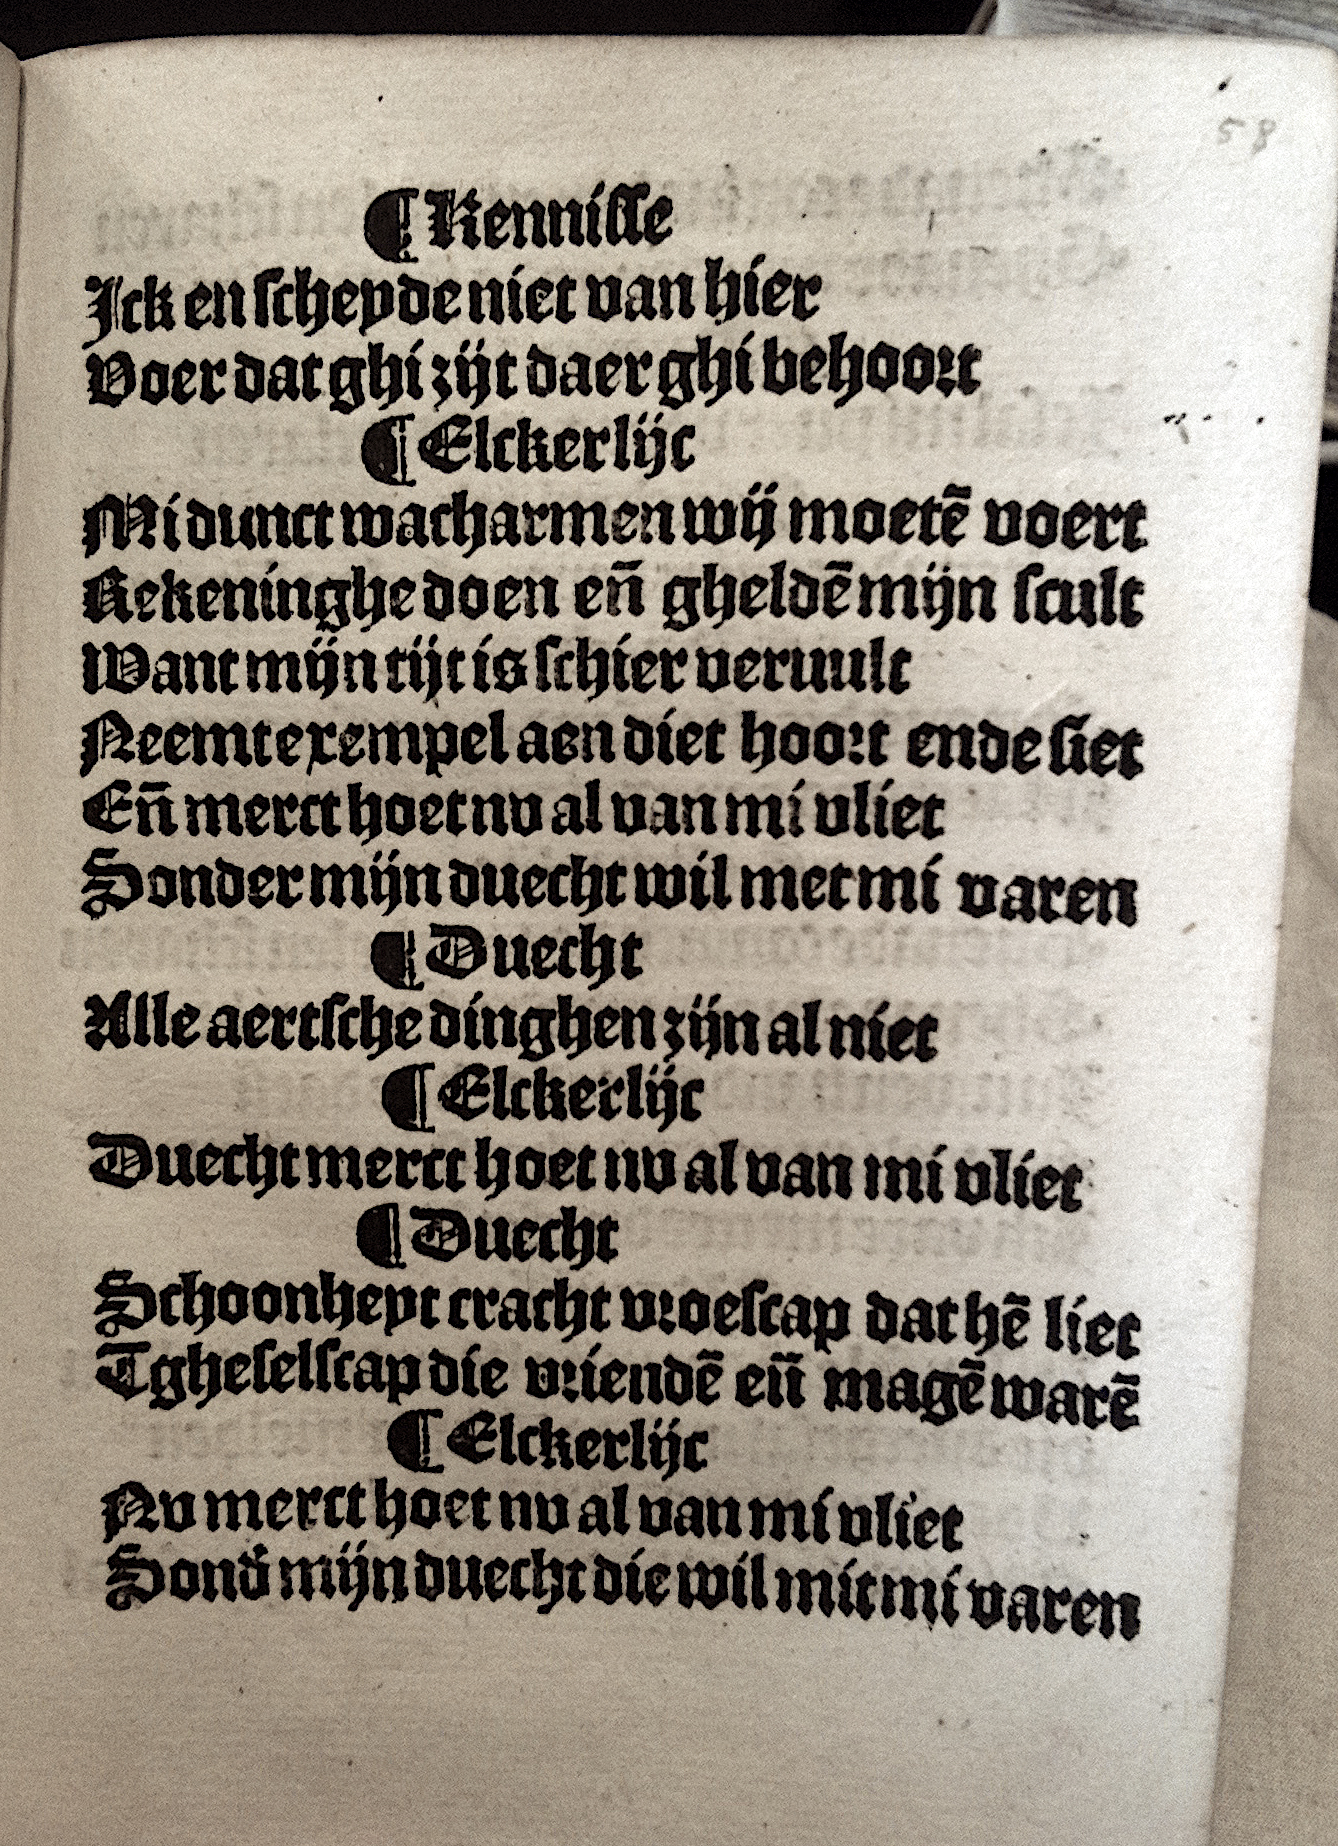 58
¶ Kennisse
Ick en scheyde niet van hier
Voer dat ghi zijt daer ghi behoort
¶ Elckerlijc
Mi dunct wacharmen wij moetē voert
Rekeninghe doen eñ gheldē mijn scult
Want mijn tijt is schier veruult
Neemt exempel aen diet hoort ende siet
Eñ merct hoet nv al van mi vliet
Sonder mijn duecht wil met mi varen
¶ Duecht
Alle aertsche dinghen zijn al niet
¶ Elckerlijc
Duecht merct hoet nv al van mi vliet
¶ Duecht
Schoonheyt cracht vroescap dat hē liet
Tgheselscap die vriendē eñ magē warē
¶ Elckerlijc
Nv merct hoet nv al van mi vliet
Sond̄ mijn duecht die wil mit mi varen